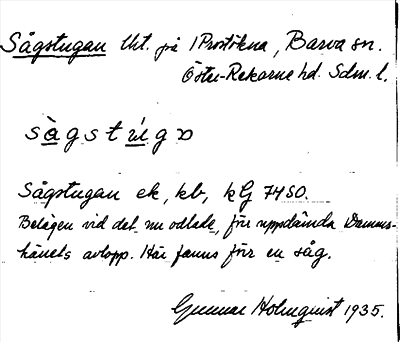 Sågstugan lht. på 1 Prostökna, Barva sn.
Öster-Rekarne hd. Sdm. l.
sàgstu̇gɷ
Sågstugan ek, kb, kG 74SO.
Belägen vid det nu odlade, förr uppdämda Damms-
härets avlopp. Här fanns förr en såg.
Gunnar Holmquist 1935.